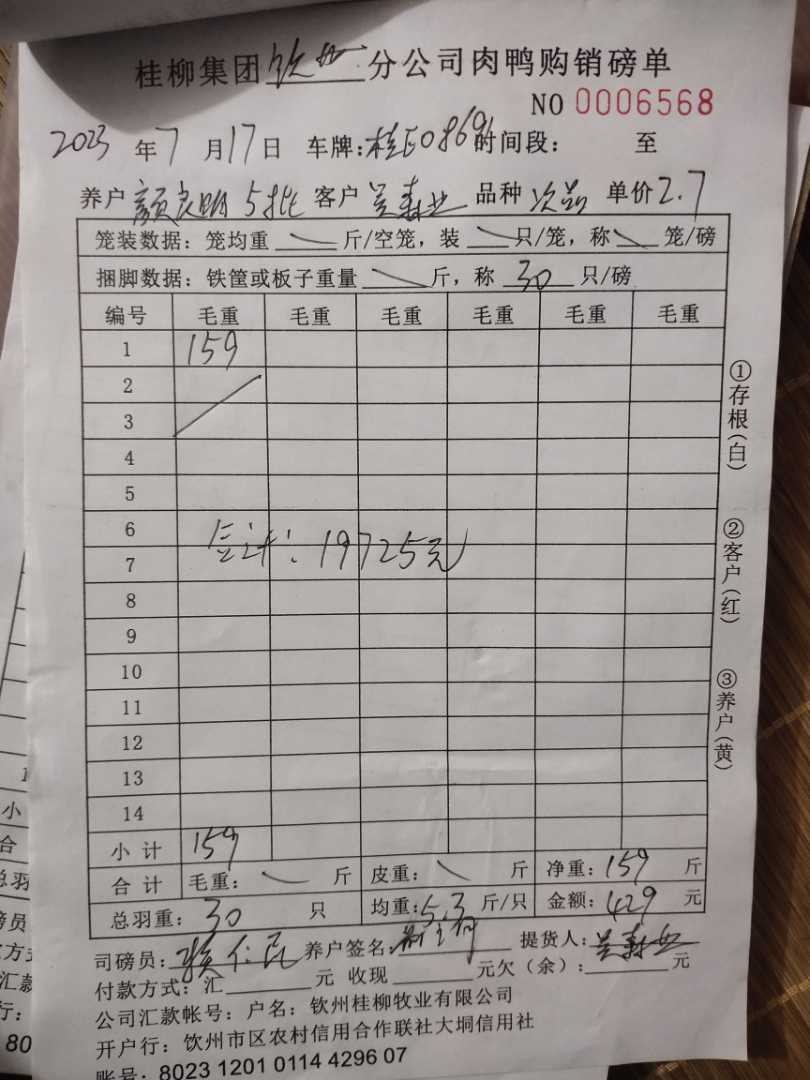 桂柳集团钦州分公司肉鸭购销磅单
NO 0006568
2023年7月17日 车牌:桂E0869 时间段: 至
养户 颜良明 5批 客户 吴森业 品种 次品 单价2.7
笼装数据:笼均重 斤/空笼,装 只/笼,称 笼/磅
捆脚数据:铁筐或板子重量 斤,称 30 只/磅
编号 毛重 毛重 毛重 毛重 毛重 毛重
1 159
2
3
4
5
6
合计:19725元
7
8
9
10
11
12
13
14
小计 159
合计 毛重: 斤 皮重: 斤 净重:159 斤
总羽重:30 只 均重:5.3 斤/只 金额:429 元
司磅员: 养户签名: 提货人:吴森业
付款方式:汇 元 收现 元欠(余): 元
公司汇款帐号:户名:钦州桂柳牧业有限公司
开户行:钦州市区农村信用合作联社大垌信用社
账号:8023 1201 0114 4296 07
①存根(白)
②客户(红)
③养户(黄)